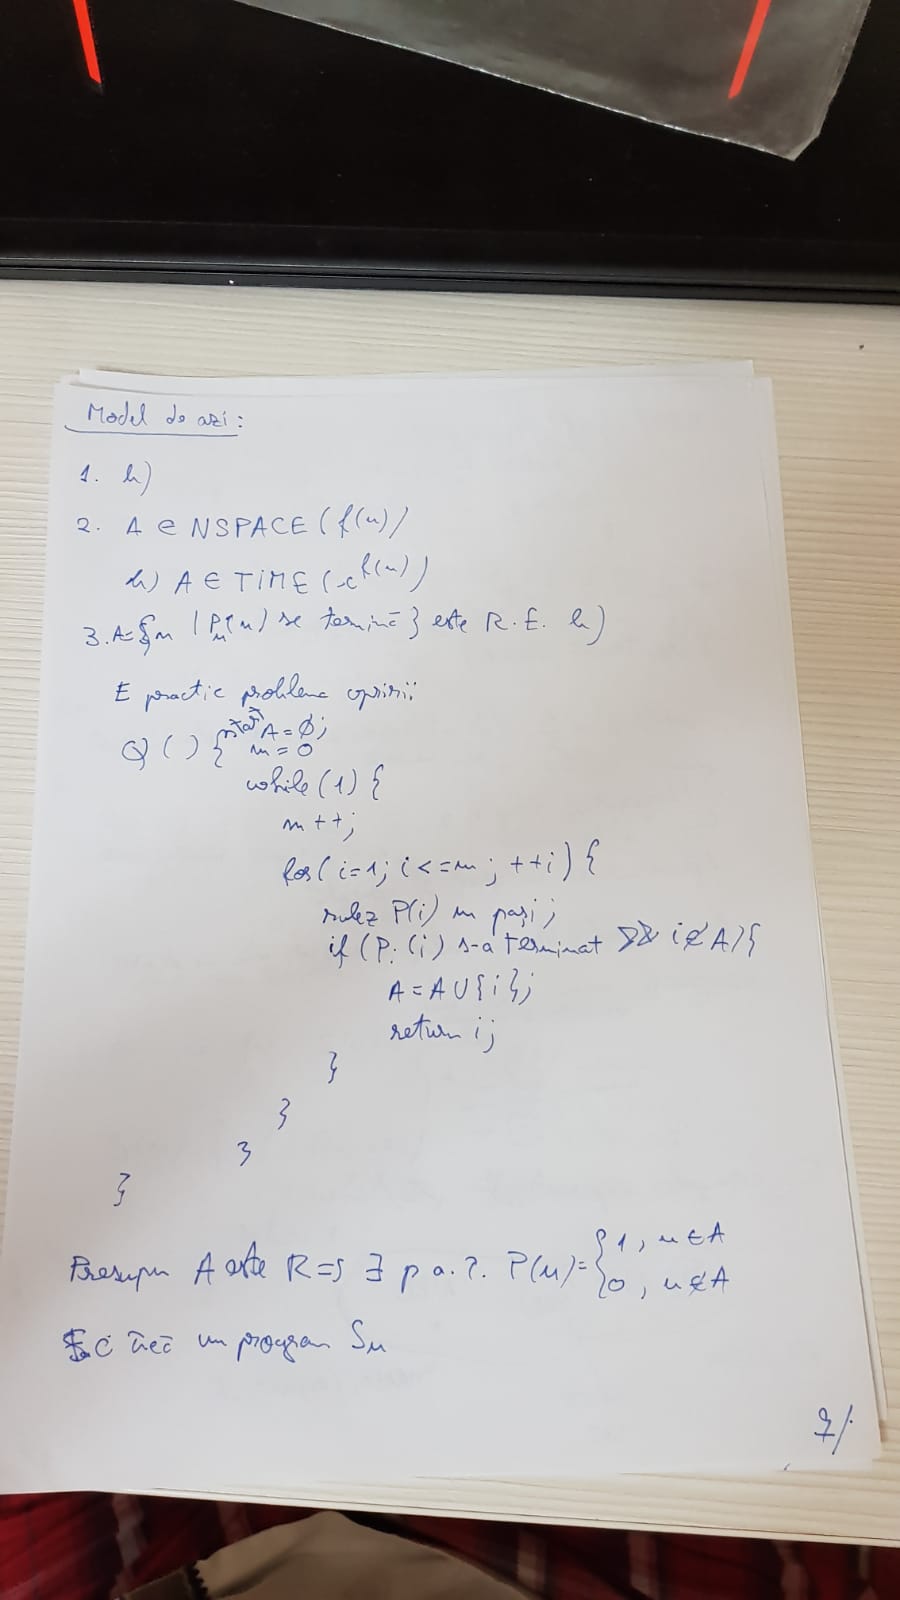 Model de azi:
1. b)
2. A ∈ NSPACE (f(n))
b) A ∈ TIME (c^f(n))
3. A={n | Pn(n) se termină} este R.E. b)
E practic problema opririi
Q() { static A = ∅;
m = 0
while (1) {
m++;
for (i=1; i<=m; ++i) {
rulez P(i) m pași;
if (Pi(i) s-a terminat && i∉A) {
A = A∪{i};
return i;
}
}
}
}
Presupun A este R => ∃ p a.î. P(n) = { 1, n∈A
0, n∉A
un program Sn